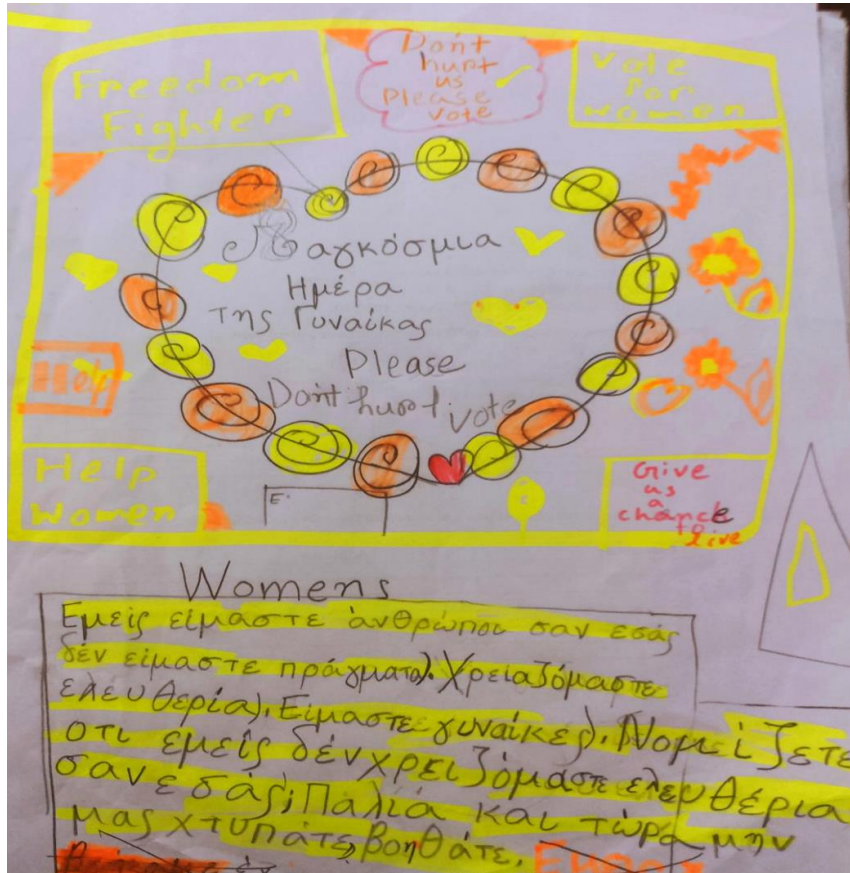 Freedom
Fighter
Don't
hurt
us
Please
vote
Vote
for
women
Παγκόσμια
Ημέρα
της Γυναίκας
Please
Don't hurt. vote
Help
Women
E.
Give
us
a
chance
to
live
Womens
Εμείς είμαστε άνθρωποι σαν εσάς
δέν είμαστε πράγματα). Χρειαζόμαστε
ελευθερία). Είμαστε γυναίκες). Νομείζετε
οτι εμείς δέν χρειζόμαστε ελευθέρια
σαν εσάς; Παλιά και τώρα μην
μας χτυπάτε, βοηθάτε,